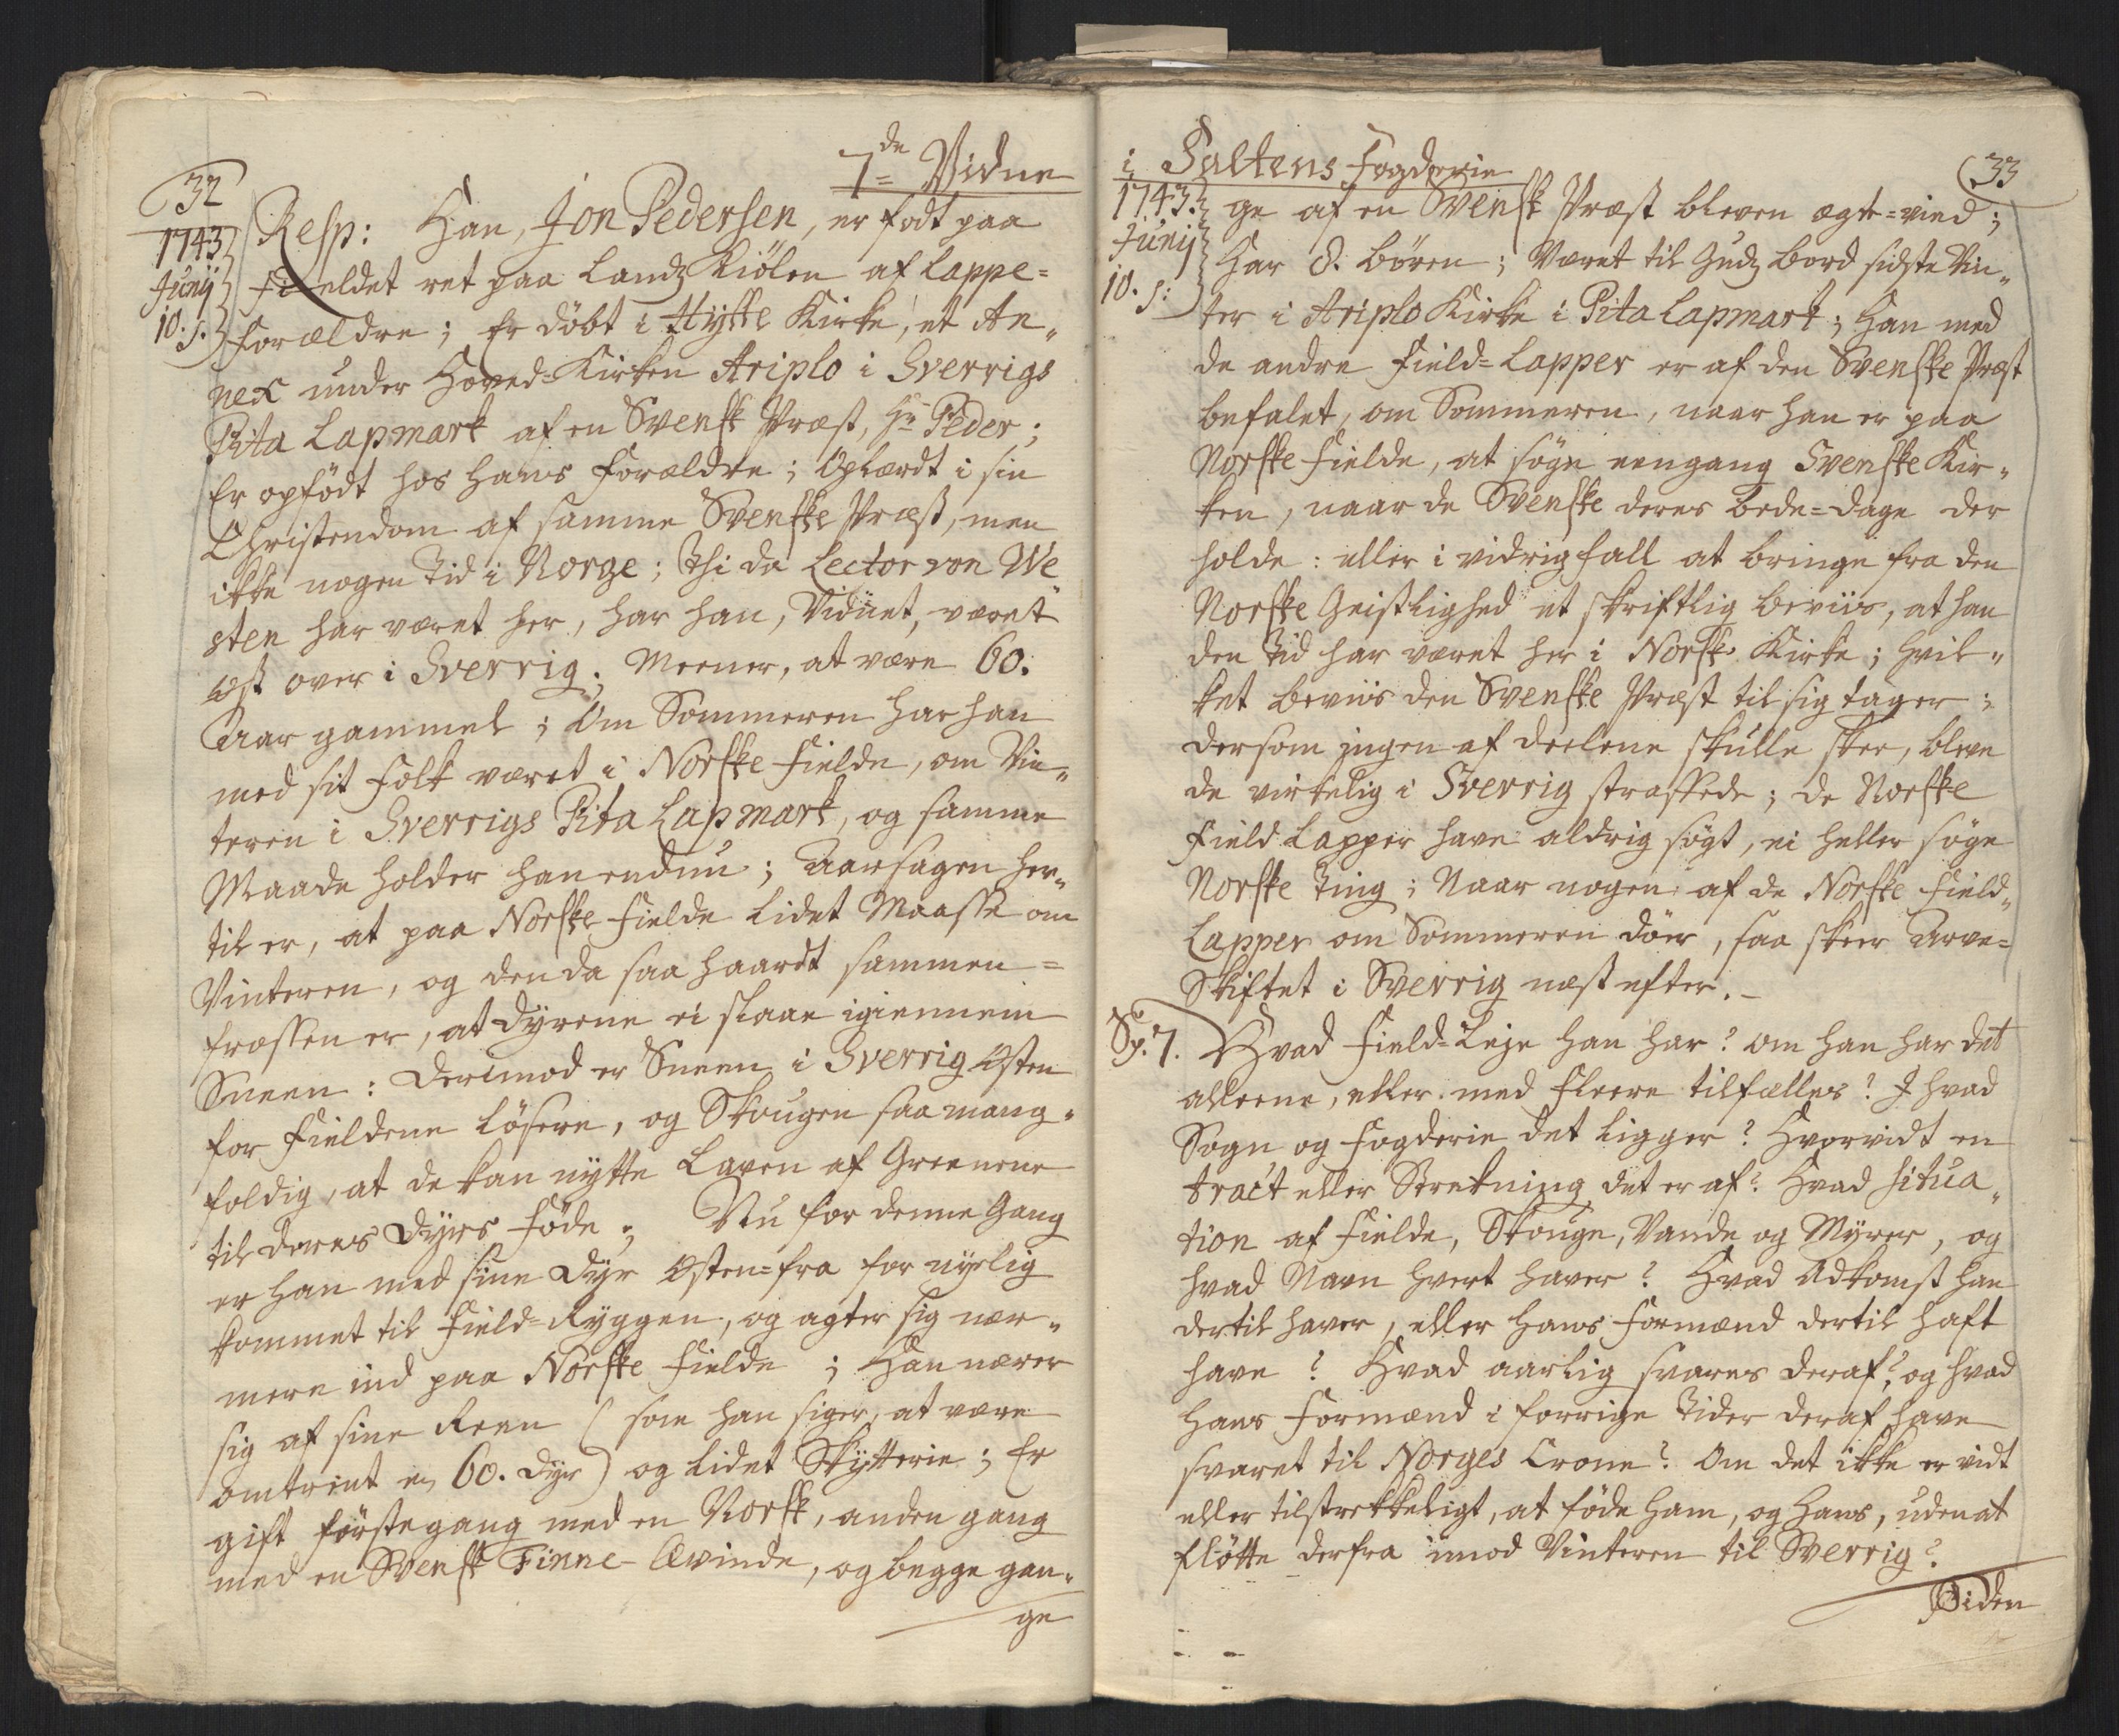 32
7de Vidne
1743
Junij
10. s:
Resp: Han, Jon Pedersen, er født paa
Fieldet ret paa Landz Kiölen af Lappe=
Forældre; Er döbt i Hytte Kirke, et An„
nex under Hoved=Kirken Ariplo i Sverrigs
Pita Lapmark af en Svensk Præst, Hr Peder;
Er opfödt hos hans Forældre; Oplærdt i sin
Christendom af samme Svenske Præst, men
ikke nogen Tid i Norge; Thi da Lector von We„
sten har været her, har han, Vidnet, været
øst over i Sverrig; Meener, at være 60.
Aar gammel; Om Sommeren har han
med sit Folk været i Norske Fielde, om Vin„
teren i Sverrigs Pita Lapmark, og samme
Maade holder han endnu; Aarsagen her„
til er, at paa Norske Fielde lidet Maasse om
Vinteren, og den da saa haardt sammen=
frossen er, at Dyrene ei slaae igiennem
Sneen: Derimod er Sneen i Sverrig Østen
for Fieldene lösere, og Skougen saa mang„
foldig, at de kan nytte Laven af Greenene
til deres Dyrs Föde; Nu for denne Gang
er han med sine Dyr Østen=fra for nyelig
kommet til Field=Ryggen, og agter sig nær„
mere ind paa Norske Fielde; Han nærer
sig af sine Reen (som han siger, at være
omtrent en 60. Dyr) og lidet Skytterie; Er
gift förste gang med en Norsk, anden gang
med en Svensk Finne-Qvinde, og begge gan„
ge
i Saltens Fogderie
33
1743.
Junij
10. s:
ge af en Svensk Præst bleven ægte=vied;
Har 8. Börn; Været til Gudz Bord sidste Vin„
ter i Ariplo Kirke i Pita Lapmark; Han med
de andre Field=Lapper er af den Svenske Præst
befalet, om Sommeren, naar han er paa
Norske Fielde, at søge eengang Svenske Kir„
ken, naar de Svenske deres Bede=Dage der
holde: eller i vidrig fall at bringe fra den
Norske Geistlighed et skriftlig Beviis, at han
den Tid har været her i Norsk Kirke; Hvil„
ket Beviis den Svenske Præst til sig tager;
dersom ingen af Deelene skulle skee, bleve
de virkelig i Sverrig straffede; De Norske
Field Lapper have aldrig søgt, ei heller söge
Norske Ting; Naar nogen af de Norske Field„
Lapper om Sommeren döer, saa skeer Arve=
Skiftet i Sverrig næst efter.
Sp. 7. Hvad Field=Leje han har? om han har det
alleene, eller med fleere tilfælles? I hvad
Sogn og Fogderie det ligger? Hvorvidt en
tract eller Strekning det er af? Hvad situa„
tion af Fielde, Skouge, Vande og Myrer, og
hvad Navn hvert haver? Hvad Adkomst han
dertil haver, eller hans Formænd dertil haft
have? Hvad aarlig svares deraf? og hvad
hans Formænd i forrige Tider deraf have
svaret til Norges Crone? Om det ikke er vidt
eller tilstrekkeligt, at föde ham, og hans, uden at
flötte derfra imod Vinteren til Sverrig?
Siden